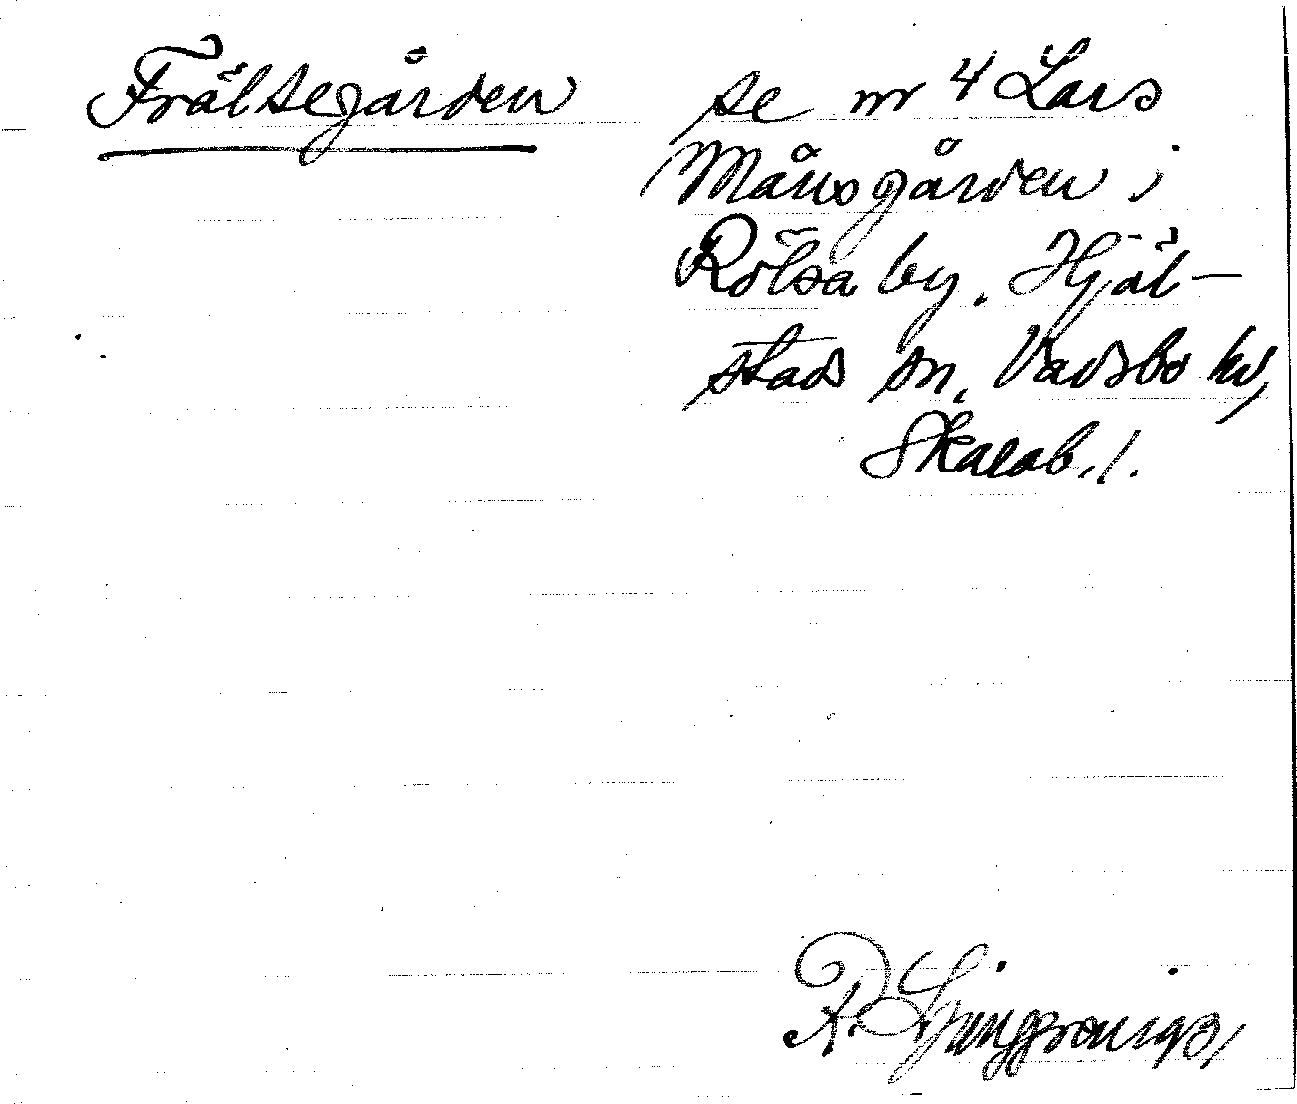 Frälsegården se nr 4 Lars
Månsgården i
Rölsa by. Hjäl-
stad sn, Vadsbo hd,
Skarab. l.
R. Ljunggren 1931